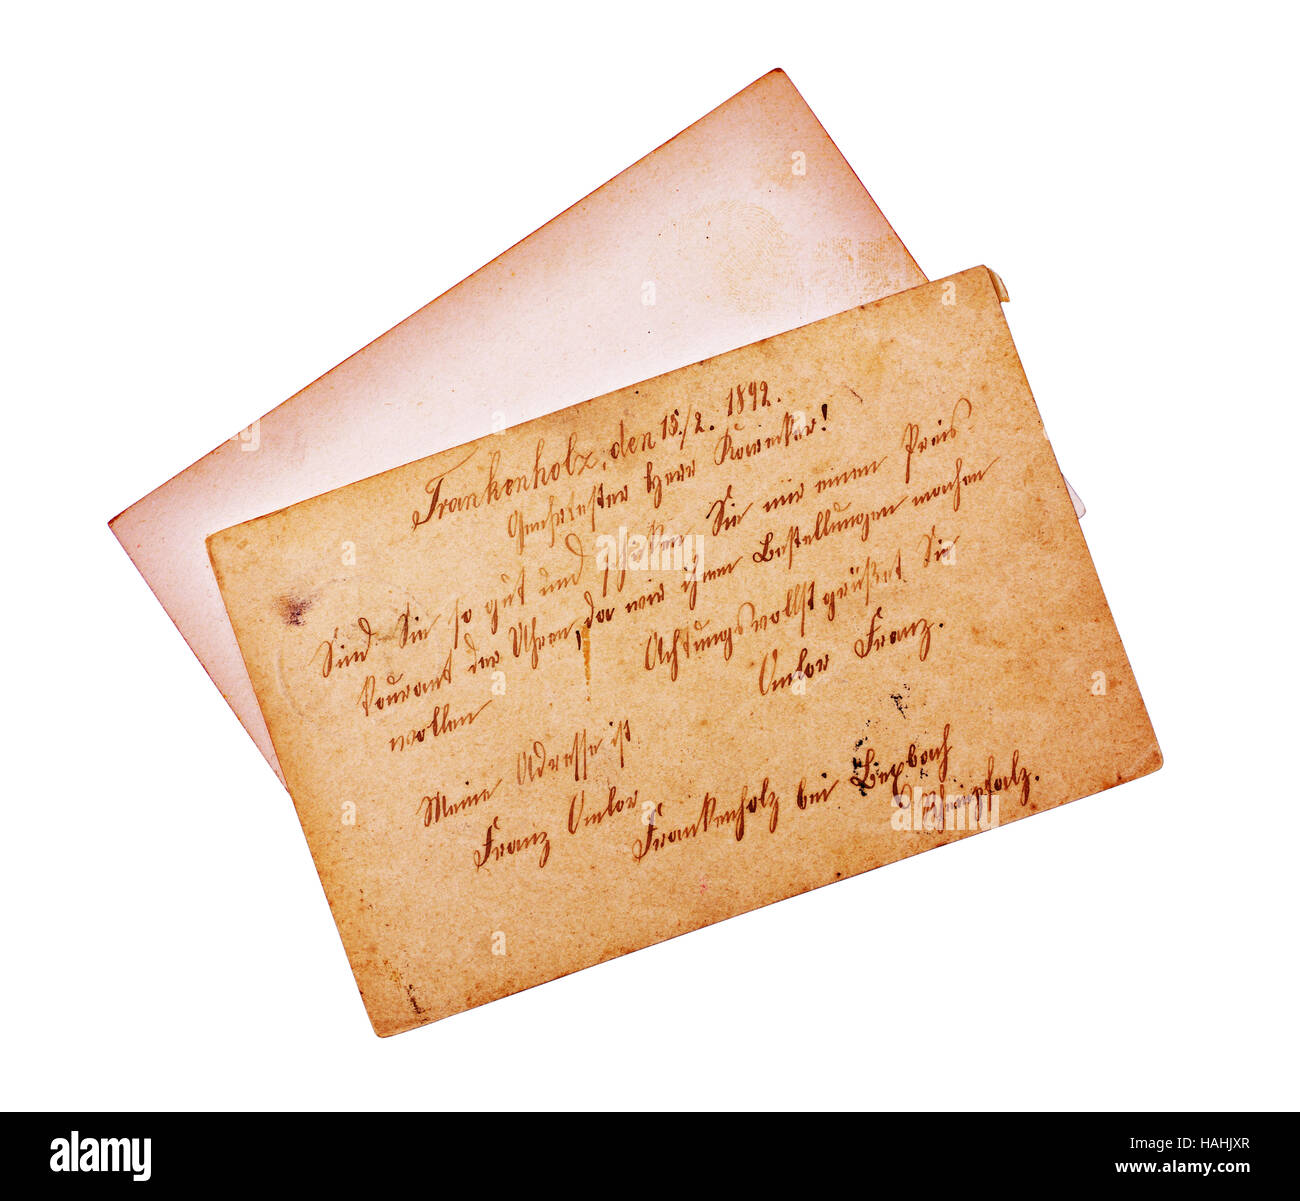 Frankenholz, den 15./2. 1892.
Geehrtester Herr
Sind Sie so gut und schicken Sie mir einen Preis
Kourant der Uhren, da wir ihnen Bestellungen machen
wollen Achtungsvollst grüßet Sie
Omlor Franz.
Meine Adresse ist
Franz Omlor
Frankenholz bei Bexbach
Rheinpfalz.
alamy
Image ID: HAHJXR
www.alamy.com